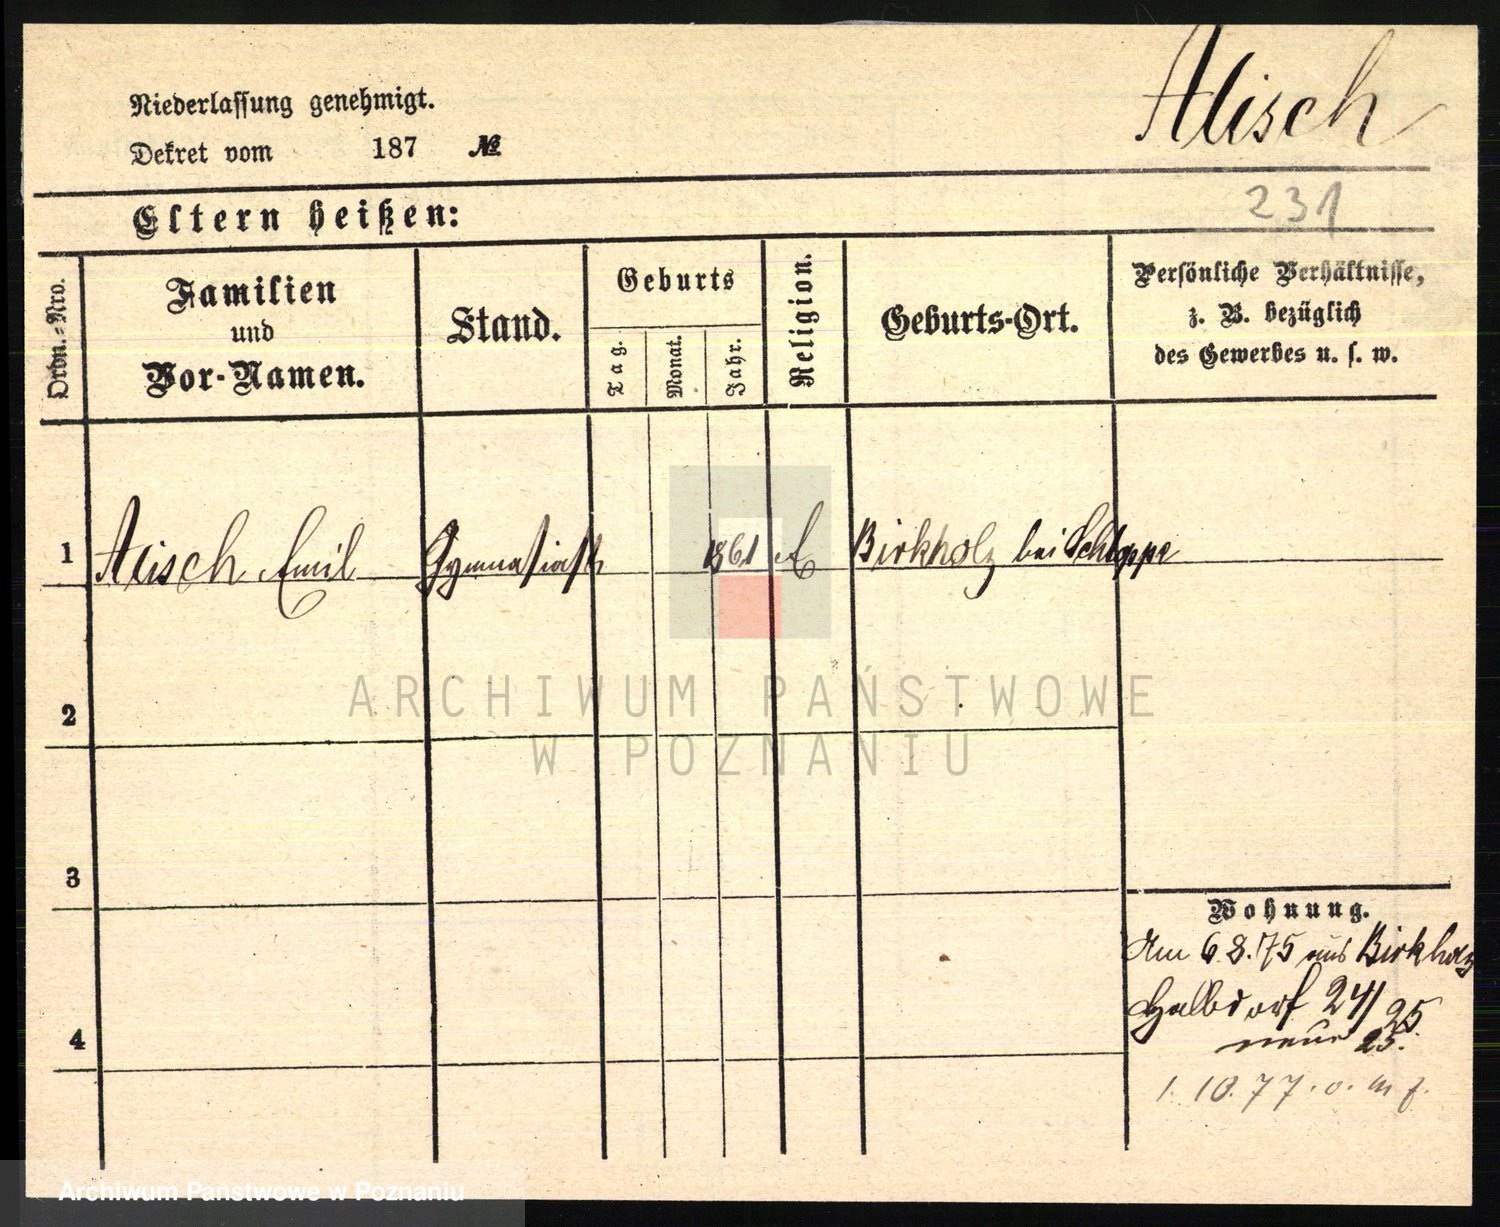 Alisch
Niederlassung genehmigt.
Dekret vom 187 №
231
Eltern heißen:
Ordn.-Nro.
Familien
und
Vor-Namen.
Stand.
Geburts
Tag.
Monat.
Jahr.
Religion.
Geburts-Ort.
Persönliche Verhältnisse,
z. B. bezüglich
des Gewerbes u. s. w.
1 Alisch Emil Gymnasiast 1861 Birkholz bei Schloppe
2
3
4
Wohnung.
Am 6.8.75 aus Birkholz
Halbdorf 24/25
neue 25.
1.10.77.
ARCHIWUM PAŃSTWOWE
W POZNANIU
Archiwum Państwowe w Poznaniu